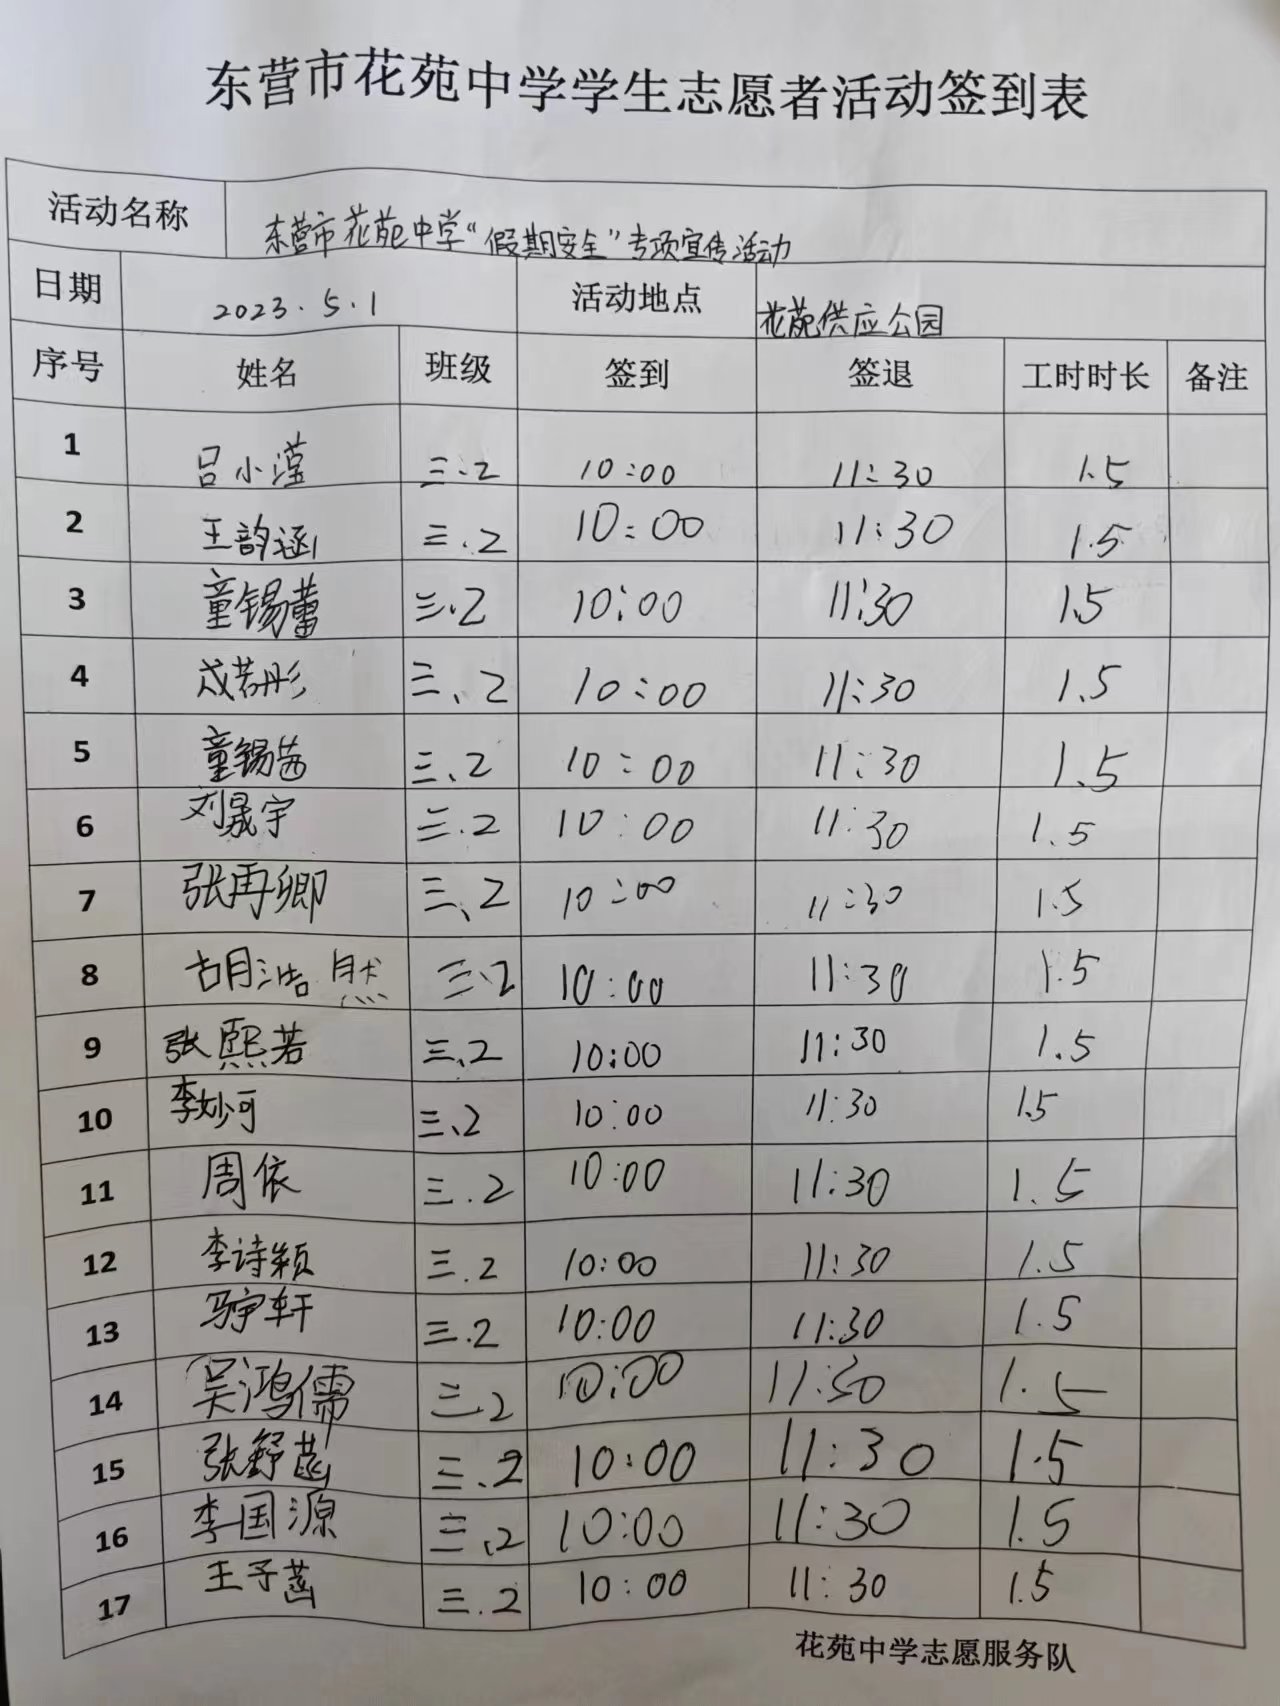 东营市花苑中学学生志愿者活动签到表
活动名称 东营市花苑中学“假期安全”专项宣传活动
日期 2023.5.1 活动地点 花苑供应公园
序号 姓名 班级 签到 签退 工时时长 备注
1 吕小滢 三.2 10:00 11:30 1.5
2 王韵涵 三.2 10:00 11:30 1.5
3 童锡蕾 三.2 10:00 11:30 1.5
4 成若彤 三、2 10:00 11:30 1.5
5 童锡茜 三、2 10:00 11:30 1.5
6 刘晟宇 三.2 10:00 11:30 1.5
7 张再卿 三、2 10:00 11:30 1.5
8 胡浩然 三.2 10:00 11:30 1.5
9 张熙若 三、2 10:00 11:30 1.5
10 李妙可 三、2 10:00 11:30 1.5
11 周依 三.2 10:00 11:30 1.5
12 李诗颖 三.2 10:00 11:30 1.5
13 冯宇轩 三.2 10:00 11:30 1.5
14 吴鸿儒 三.2 10:00 11:30 1.5
15 张舒菡 三.2 10:00 11:30 1.5
16 李国源 三、2 10:00 11:30 1.5
17 王子菡 三.2 10:00 11:30 1.5
花苑中学志愿服务队